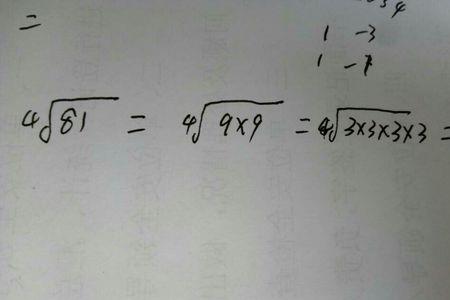 =
1 -3
1 -1
4√81 = 4√9×9 = 4√3×3×3×3 =